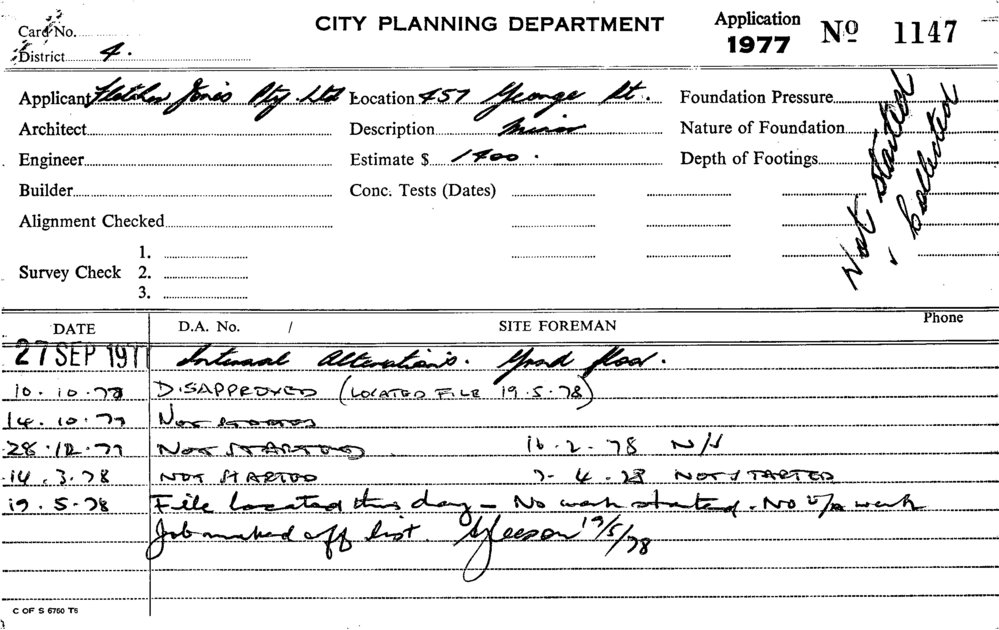 CITY PLANNING DEPARTMENT
Application 1977 No 1147
Card No.
District 4.
Applicant Fletcher Jones Pty Ltd Location 457 George St. Foundation Pressure
Architect Description Minor Nature of Foundation
Engineer Estimate $ 1400. Depth of Footings
Builder Conc. Tests (Dates)
Alignment Checked
Not started
Collected
1.
Survey Check 2.
3.
DATE D.A. No. / SITE FOREMAN Phone
27 SEP 1977 Internal Alterations. Grnd floor.
10.10.78 DISAPPROVED (LOCATED FILE 19.5.78)
14.10.77 NOT STARTED
28.12.77 NOT STARTED 16-2-78 N/S
14.3.78 NOT STARTED 7-4.78 NOT STARTED
19.5.78 File located this day - No work started. No work
Job marked off list. 19/5/78
C OF S 6760 T6